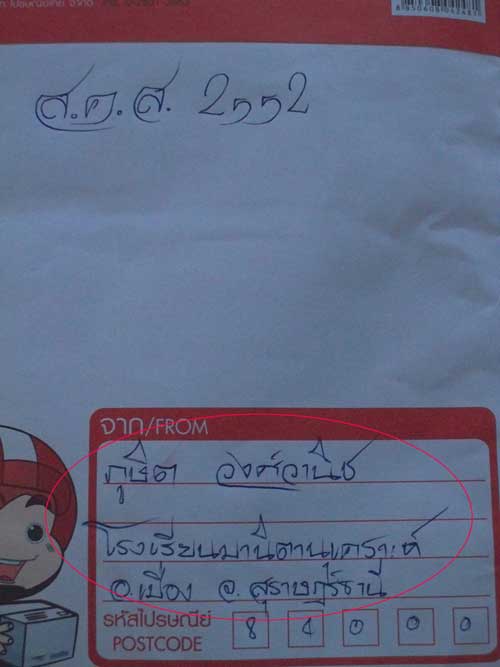 ส.ค.ส. 2552
จาก/FROM
ภูษิต วงศ์วานิช
โรงเรียนมานิตานุเคราะห์
อ.เมือง จ.สุราษฎร์ธานี
รหัสไปรษณีย์ 8 4 0 0 0
POSTCODE